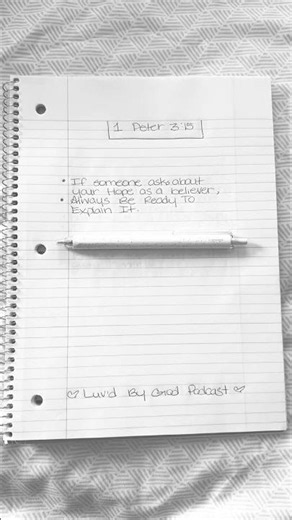 1 Peter 3:15
• If someone asks about
your Hope as a believer,
• Always Be Ready To
Explain It.
♡ Luvd By God Podcast ♡